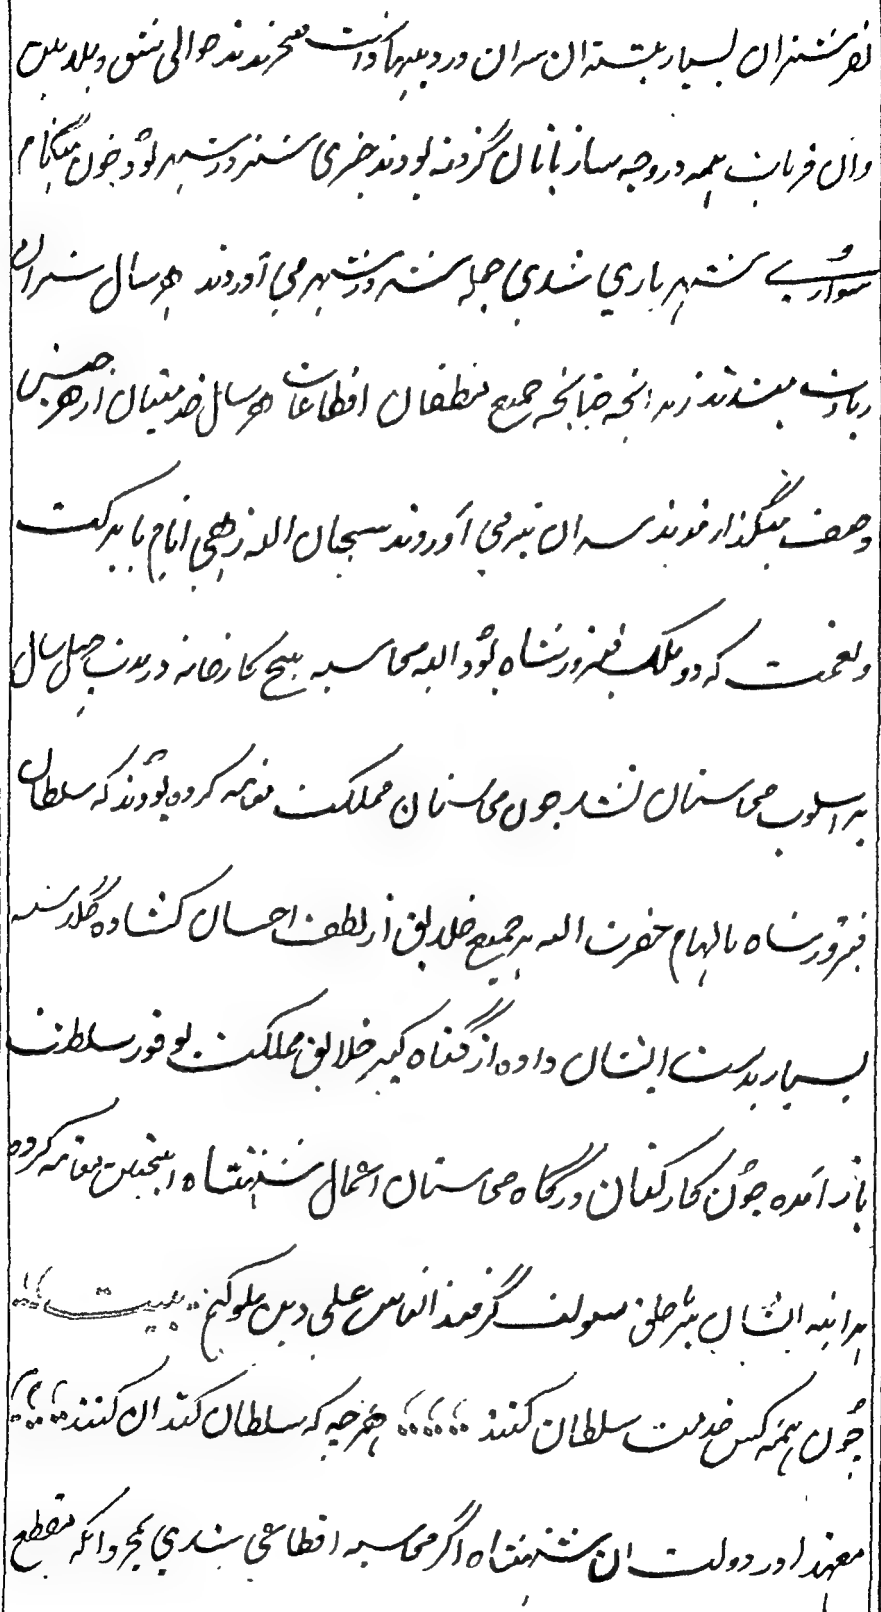 نفر شتران بسیار بیشتر ان سران در دیبها کانت میخرندند حوالی شق و بلدیس
وان قربات همه در وجه ساز بانان گردنه بودند خری شتر در شهر بود چون هنگام
سواری شهر یاری شدی جمله شتر در شهر می آوردند هر سال شتران
زیادت میشدند زیرانچه چنانچه جمیع مقطعان اقطاعات هر سال خدمتیان از هر جنس
وصف میگذارنوند سران نیز می آوردند سبحان الله زهی انام با برکت
و نعمت که دو ملک فیروز شاه بود البه محاسبه هیچ کارخانه در مدت چهل سال
بر اسلوب محاسبان نشد چون محاسبان مملکت معاینه کرده بودند که سلطان
فیروز شاه بالهام حضرت الله بر جمیع خلایق از لطف احسان کشاده گلدسته
بسیار بدست ایشان داده از گناه کبیر خلایق مملکت بوفور سلطنت
باز آمده چون کارکنان درگاه محاسبان اعمال شهنشاه اینچنین معاینه کرده
هر اینه ایشان بر طریق سهولت گرفتند الناس علی دین ملوکهم بیت
چون همه کس خدمت سلطان کنند هر چه که سلطان کند ان کنند
معهذا در دولت ان شهنشاه اگر محاسبه اقطاعی شدی بمجرد انکه مقطع